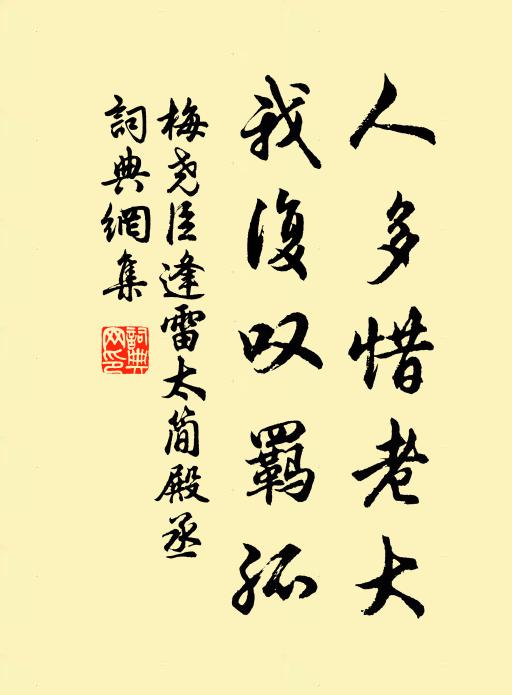 人多惜老大
我復叹羈孤
梅尧臣逢雷太简殿丞
詞典網集
詞典網印